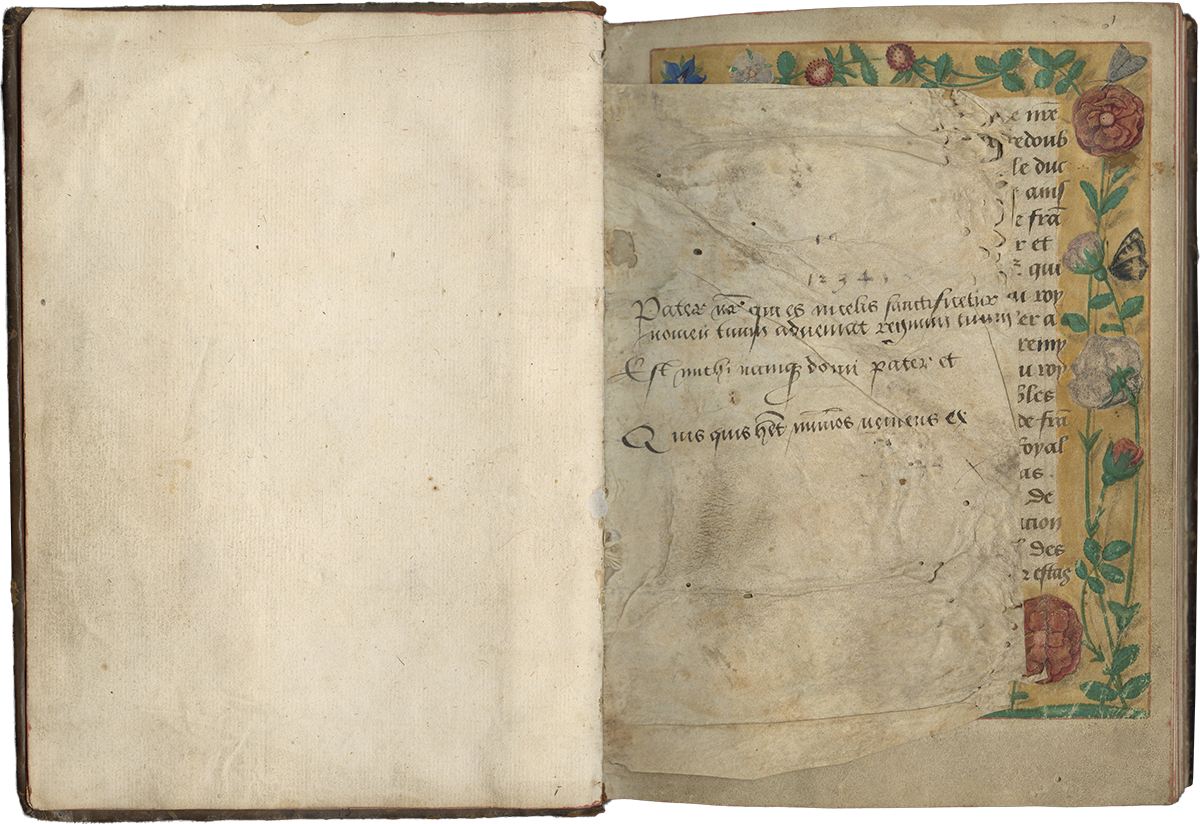 1234
Pater nr̄ qui es in celis sanctificetur
nomen tuum adveniat regnum tuum
Est michi namq̃ domi pater et
Quis quis h̄et nummos
e m̄e
edoub
le duc
ains
e frā
r et
qui
u roy
er a
remy
u roy
bles
de frā
royal
as .
de
ation
des
r estas